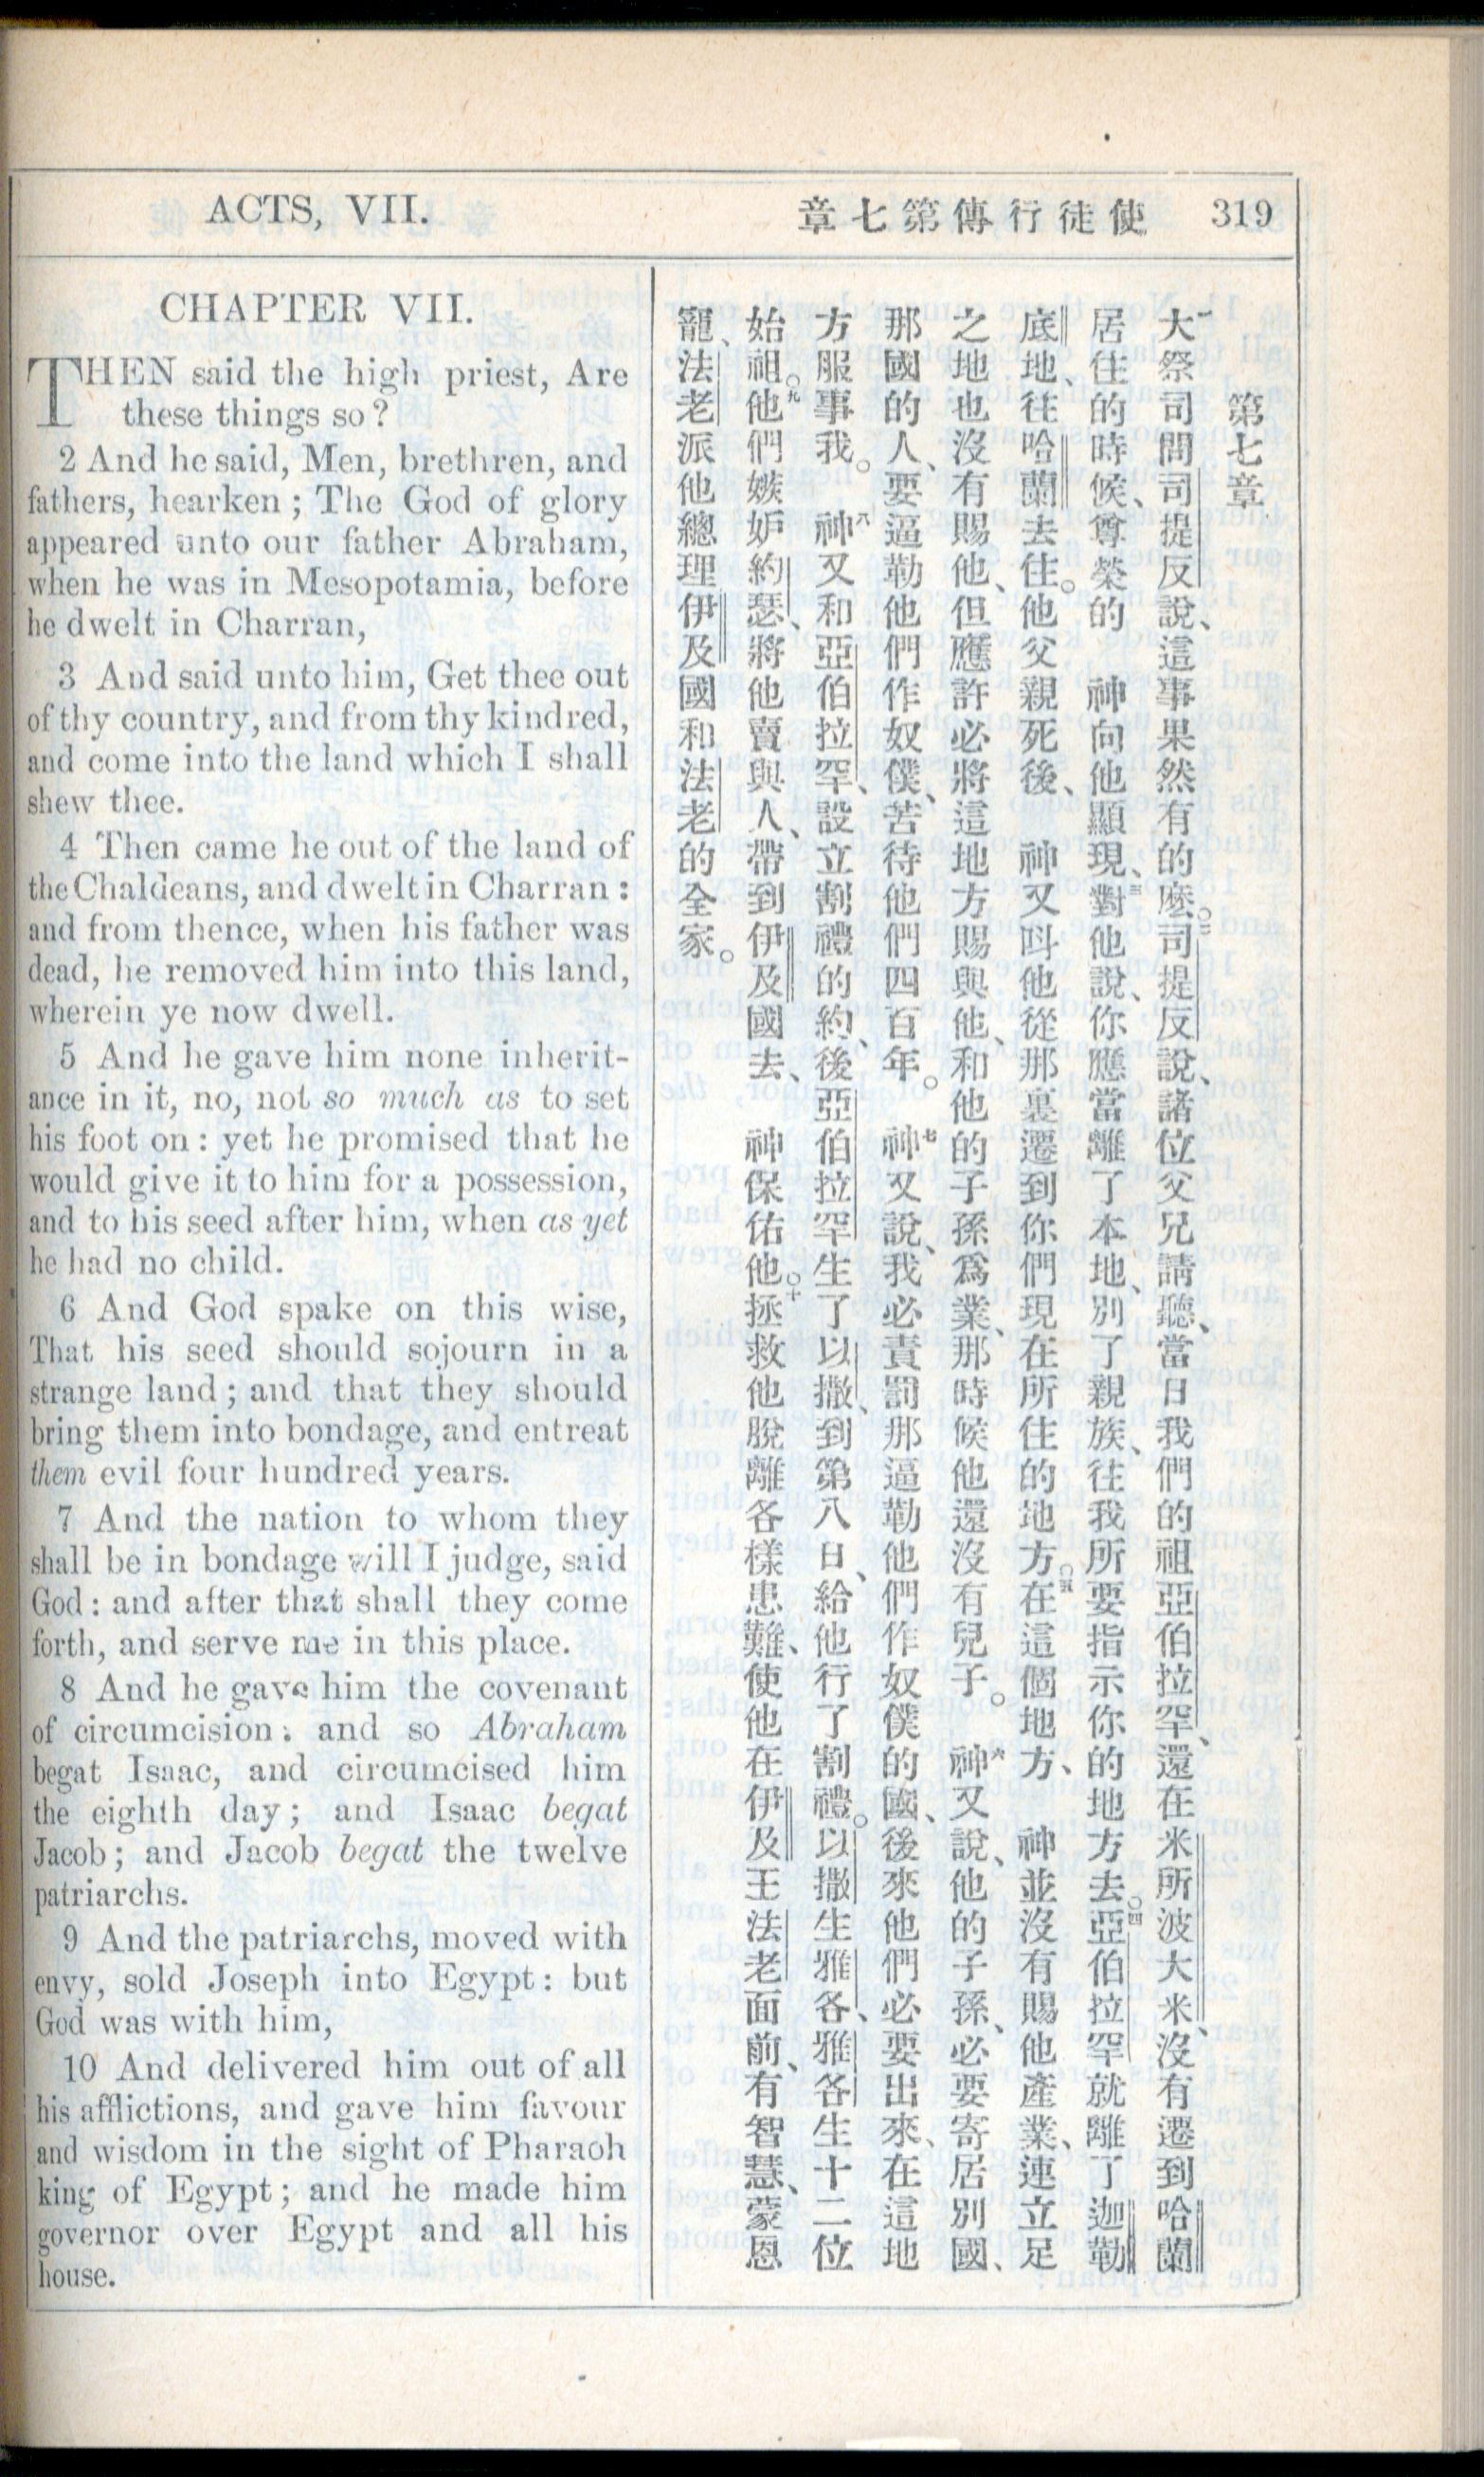 ACTS, VII.
使徒行傳第七章
319
CHAPTER VII.
THEN said the high priest, Are
these things so?
2 And he said, Men, brethren, and
fathers, hearken; The God of glory
appeared unto our father Abraham,
when he was in Mesopotamia, before
he dwelt in Charran,
3 And said unto him, Get thee out
of thy country, and from thy kindred,
and come into the land which I shall
shew thee.
4 Then came he out of the land of
the Chaldeans, and dwelt in Charran:
and from thence, when his father was
dead, he removed him into this land,
wherein ye now dwell.
5 And he gave him none inherit-
ance in it, no, not so much as to set
his foot on: yet he promised that he
would give it to him for a possession,
and to his seed after him, when as yet
he had no child.
6 And God spake on this wise,
That his seed should sojourn in a
strange land; and that they should
bring them into bondage, and entreat
them evil four hundred years.
7 And the nation to whom they
shall be in bondage will I judge, said
God: and after that shall they come
forth, and serve me in this place.
8 And he gave him the covenant
of circumcision: and so Abraham
begat Isaac, and circumcised him
the eighth day; and Isaac begat
Jacob; and Jacob begat the twelve
patriarchs.
9 And the patriarchs, moved with
envy, sold Joseph into Egypt: but
God was with him,
10 And delivered him out of all
his afflictions, and gave him favour
and wisdom in the sight of Pharaoh
king of Egypt; and he made him
governor over Egypt and all his
house.
第七章
一大祭司問司提反說、這事果然有的麽。○二司提反說、諸位父兄請聽、當日我們的祖亞伯拉罕、還在米所波大米、沒有遷到哈蘭
居住的時候、尊榮的 神向他顯現、三對他說、你應當離了本地、別了親族、往我所要指示你的地方去。○四亞伯拉罕就離了迦勒
底地、往哈蘭去住。他父親死後、 神又呌他從那裏遷到你們現在所住的地方。○五在這個地方、 神並沒有賜他產業、連立足
之地也沒有賜他、但應許必將這地方賜與他、和他的子孫爲業、那時候他還沒有兒子。六神又說、他的子孫、必要寄居別國、
那國的人、要逼勒他們作奴僕、苦待他們四百年。七神又說、我必責罰那逼勒他們作奴僕的國、後來他們必要出來、在這地
方服事我。八神又和亞伯拉罕、設立割禮的約、後亞伯拉罕生了以撒、到第八日、給他行了割禮。以撒生雅各、雅各生十二位
始祖。○九他們嫉妒約瑟、將他賣與人、帶到伊及國去、 神保佑他。○十拯救他脫離各樣患難、使他在伊及王法老面前、有智慧、蒙恩
寵、法老派他總理伊及國和法老的全家。